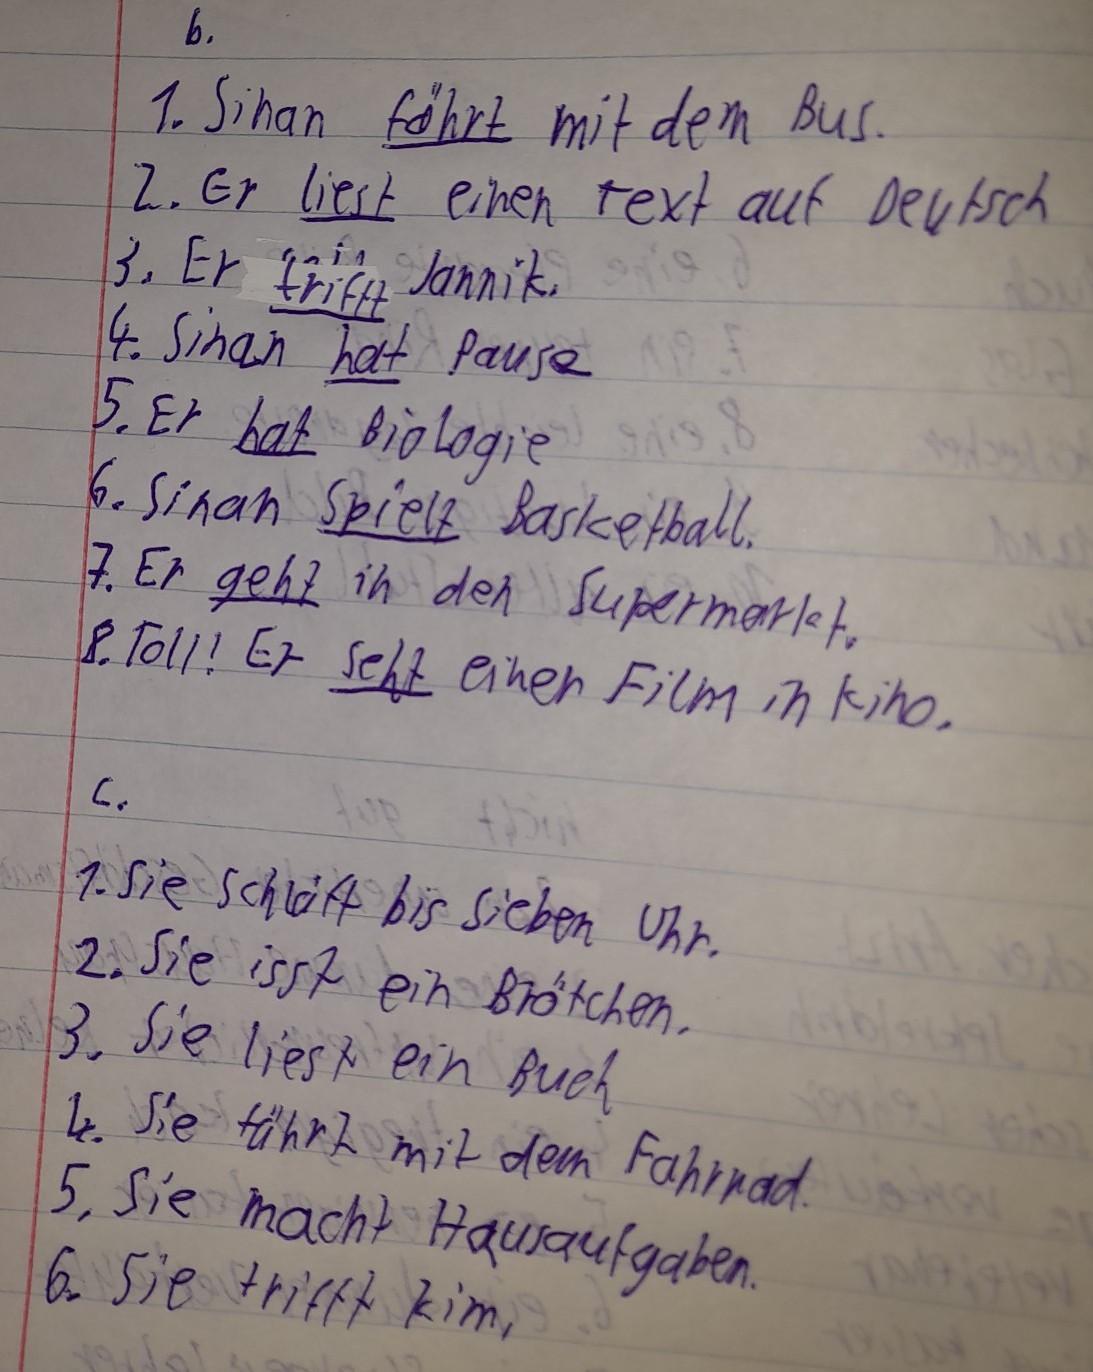 b.
1. Sinan fährt mit dem Bus.
2. Er liest einen text auf Deutsch
3. Er trifft Jannik.
4. Sinan hat Pause
5. Er hat Biologie
6. Sinan spielt Basketball.
7. Er geht in den Supermarkt.
8. Toll! Er seht einen Film in kino.
c.
1. Sie schläft bis sieben Uhr.
2. Sie isst ein Brötchen.
3. Sie liest ein Buch
4. Sie fährt mit dem Fahrrad.
5. Sie macht Hausaufgaben.
6. Sie trifft kim.